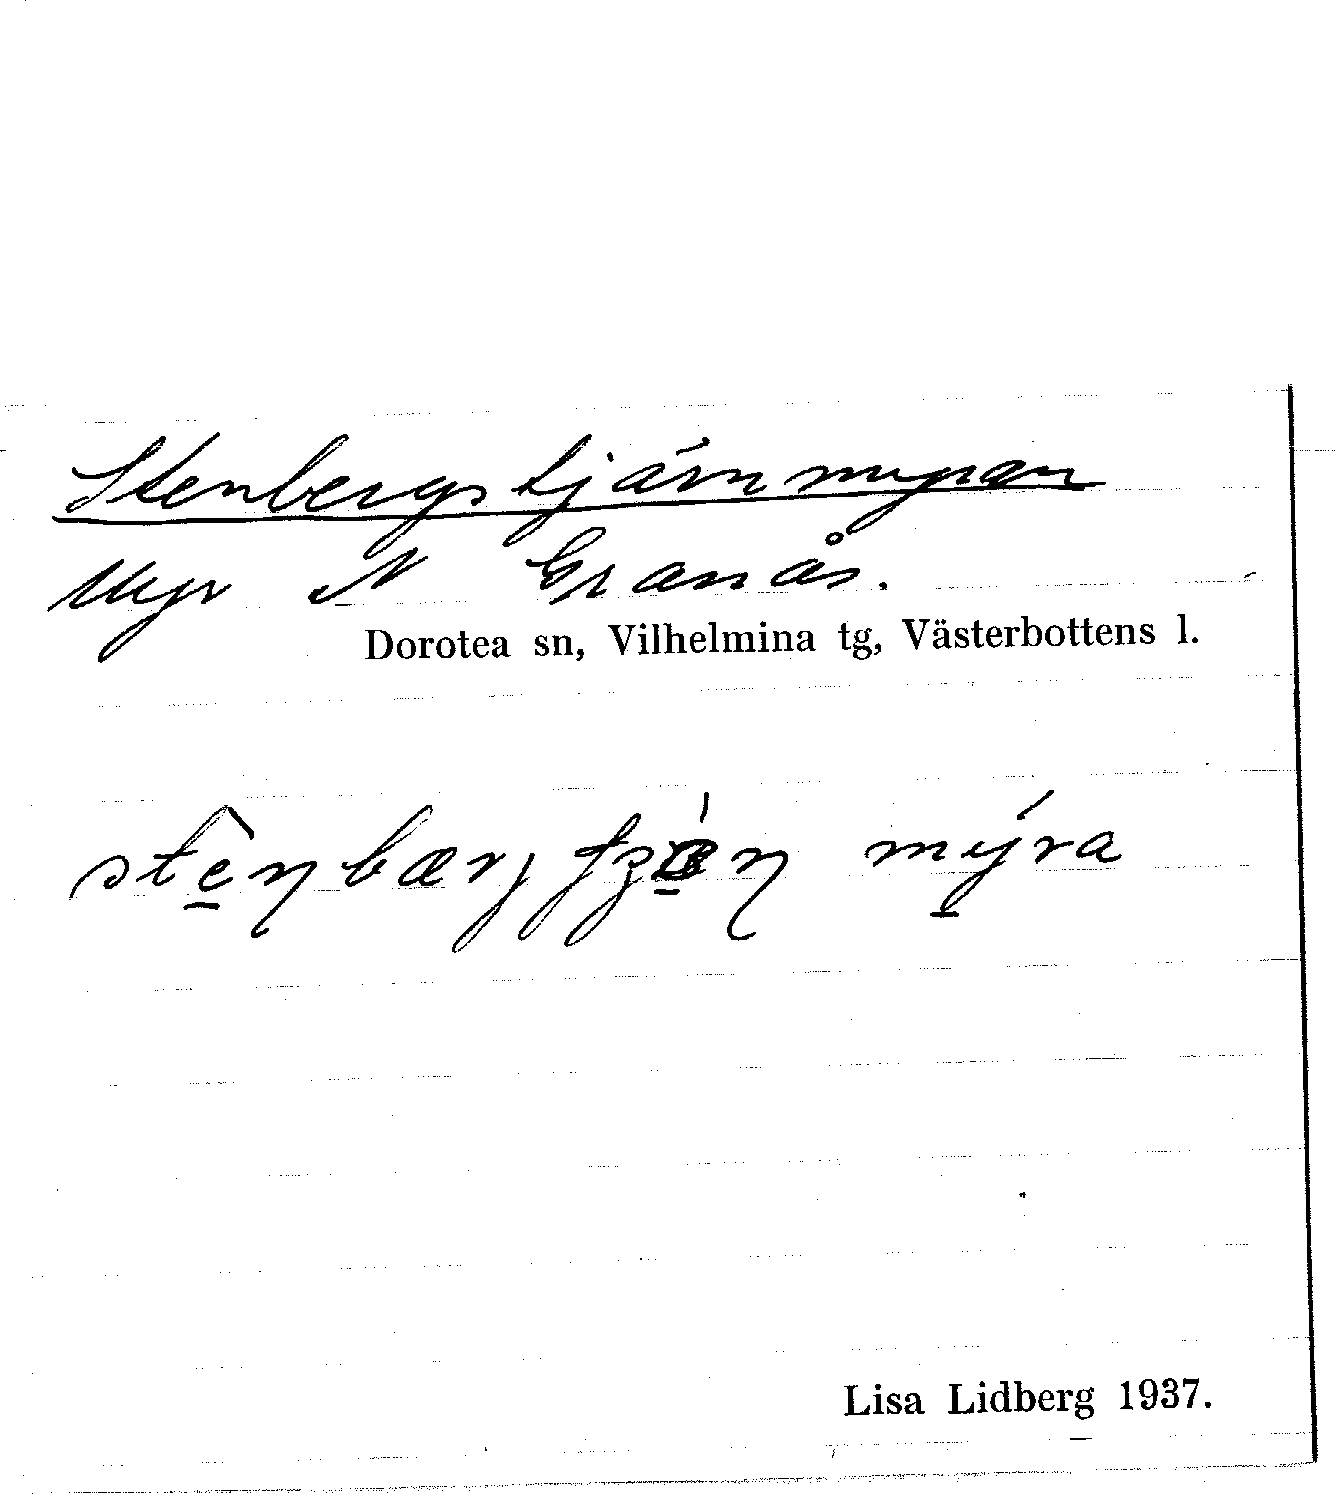 Stenbergstjärnmyran
Myr N Granås.
Dorotea sn, Vilhelmina tg, Västerbottens l.
Lisa Lidberg 1937.